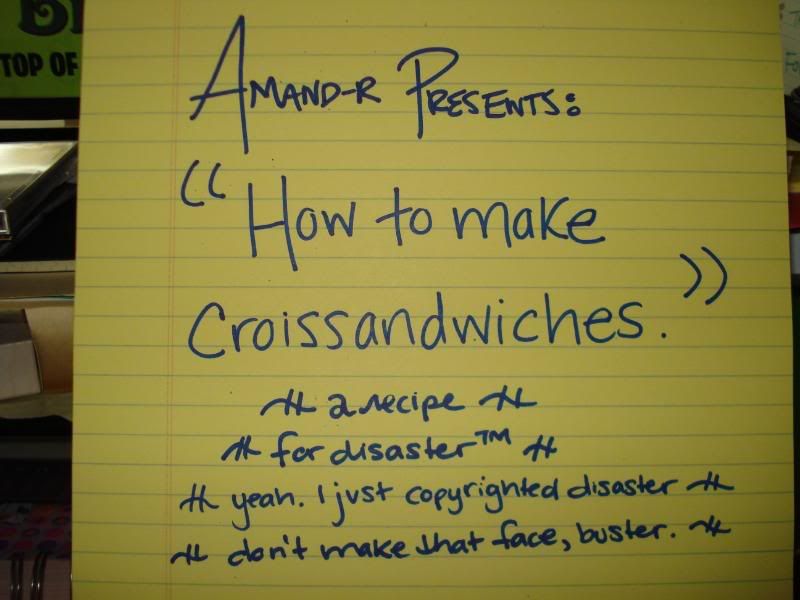 TOP OF
AMAND-R PRESENTS:
"How to make
Croissandwiches."
~H~ a recipe ~H~
~H~ for disaster™ ~H~
~H~ yeah. I just copyrighted disaster ~H~
~H~ don't make that face, buster. ~H~